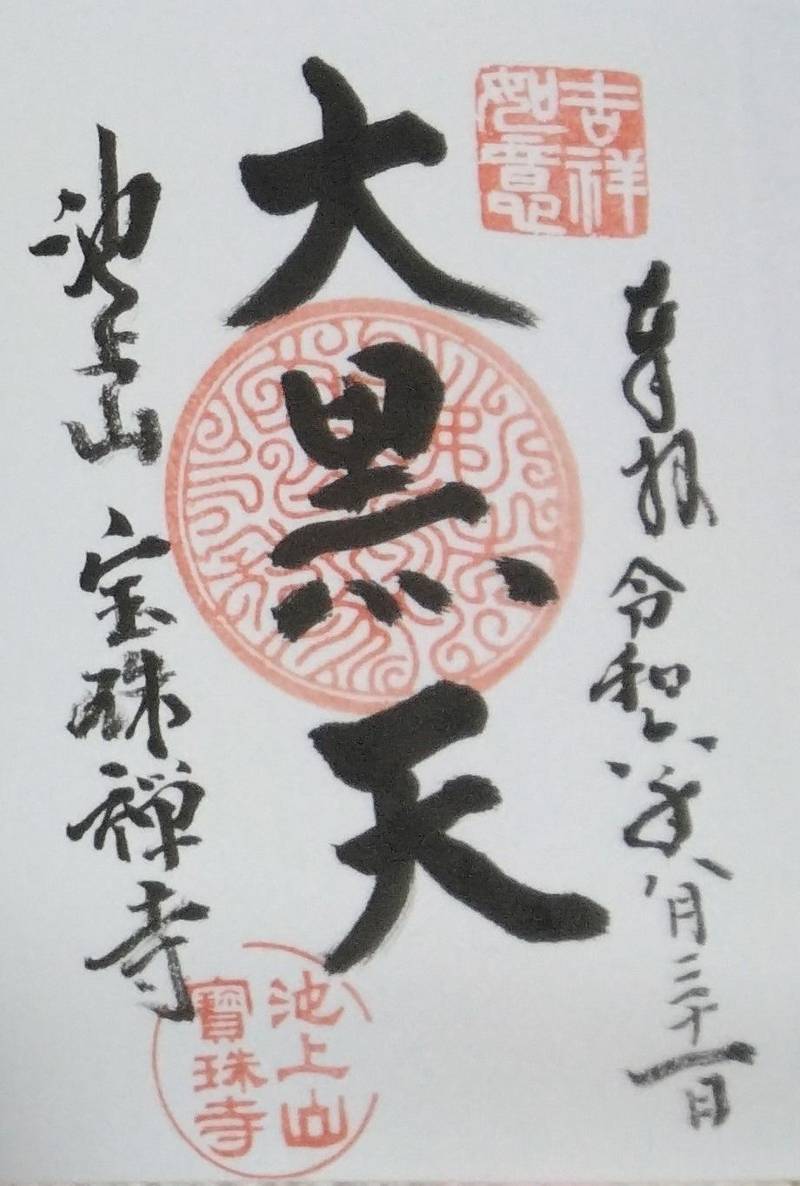 吉祥
如意
奉拝 令和六年八月三十一日
大黒天
池上山 宝珠禅寺
池上山
寳珠寺